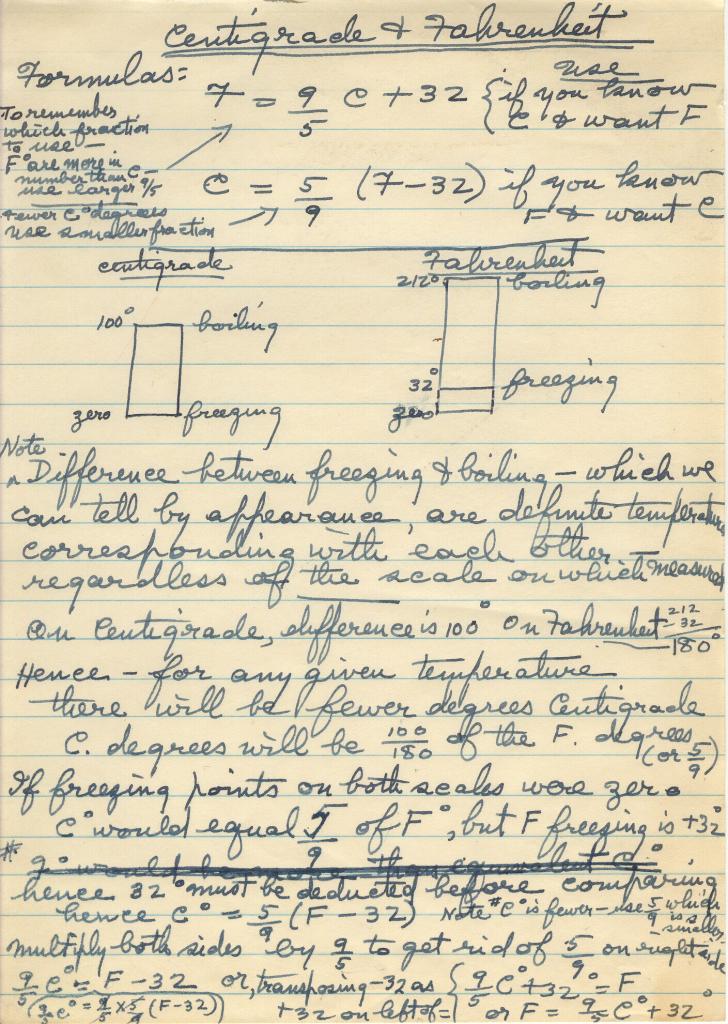 Centigrade & Fahrenheit
Formulas:
F = 9/5 C + 32 { if you know
Use
C & want F
To remember
which fraction
to use –
F° are more in
number than C –
use larger 9/5
fewer C° degrees
use smaller fraction
C = 5/9 (F – 32) if you know
F & want C
centigrade
Fahrenheit
212° boiling
100° boiling
32° freezing
zero freezing
zero
Note
Difference between freezing & boiling – which we
can tell by appearance, are definite temperatures
corresponding with each other
regardless of the scale on which measured
On Centigrade, difference is 100° On Fahrenheit 212
- 32
180°
Hence – for any given temperature
there will be fewer degrees Centigrade
C. degrees will be 100/180 of the F. degrees
(or 5/9)
If freezing points on both scales were zero
C° would equal 5/9 of F°, but F freezing is +32°
hence 32° must be deducted before comparing
hence C° = 5/9 (F – 32) Note # C° is fewer – use 5/9 which
is smaller
multiply both sides by 9/5 to get rid of 5/9 on right side
9/5 C° = F – 32 or, transposing -32 as { 9/5 C° + 32° = F
(9/5 C° = 9/5 x 5/9 (F – 32)) +32 on left of = { or F = 9/5 C° + 32°